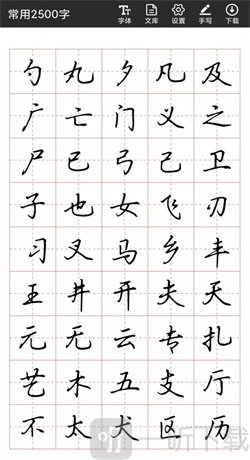 常用2500字
字体 文库 设置 手写 下载
勺 丸 夕 凡 及
广 亡 门 义 之
尸 已 弓 己 卫
子 也 女 飞 刃
习 叉 马 乡 丰
王 井 开 夫 天
元 无 云 专 扎
艺 木 五 支 厅
不 太 犬 区 历
一听下载